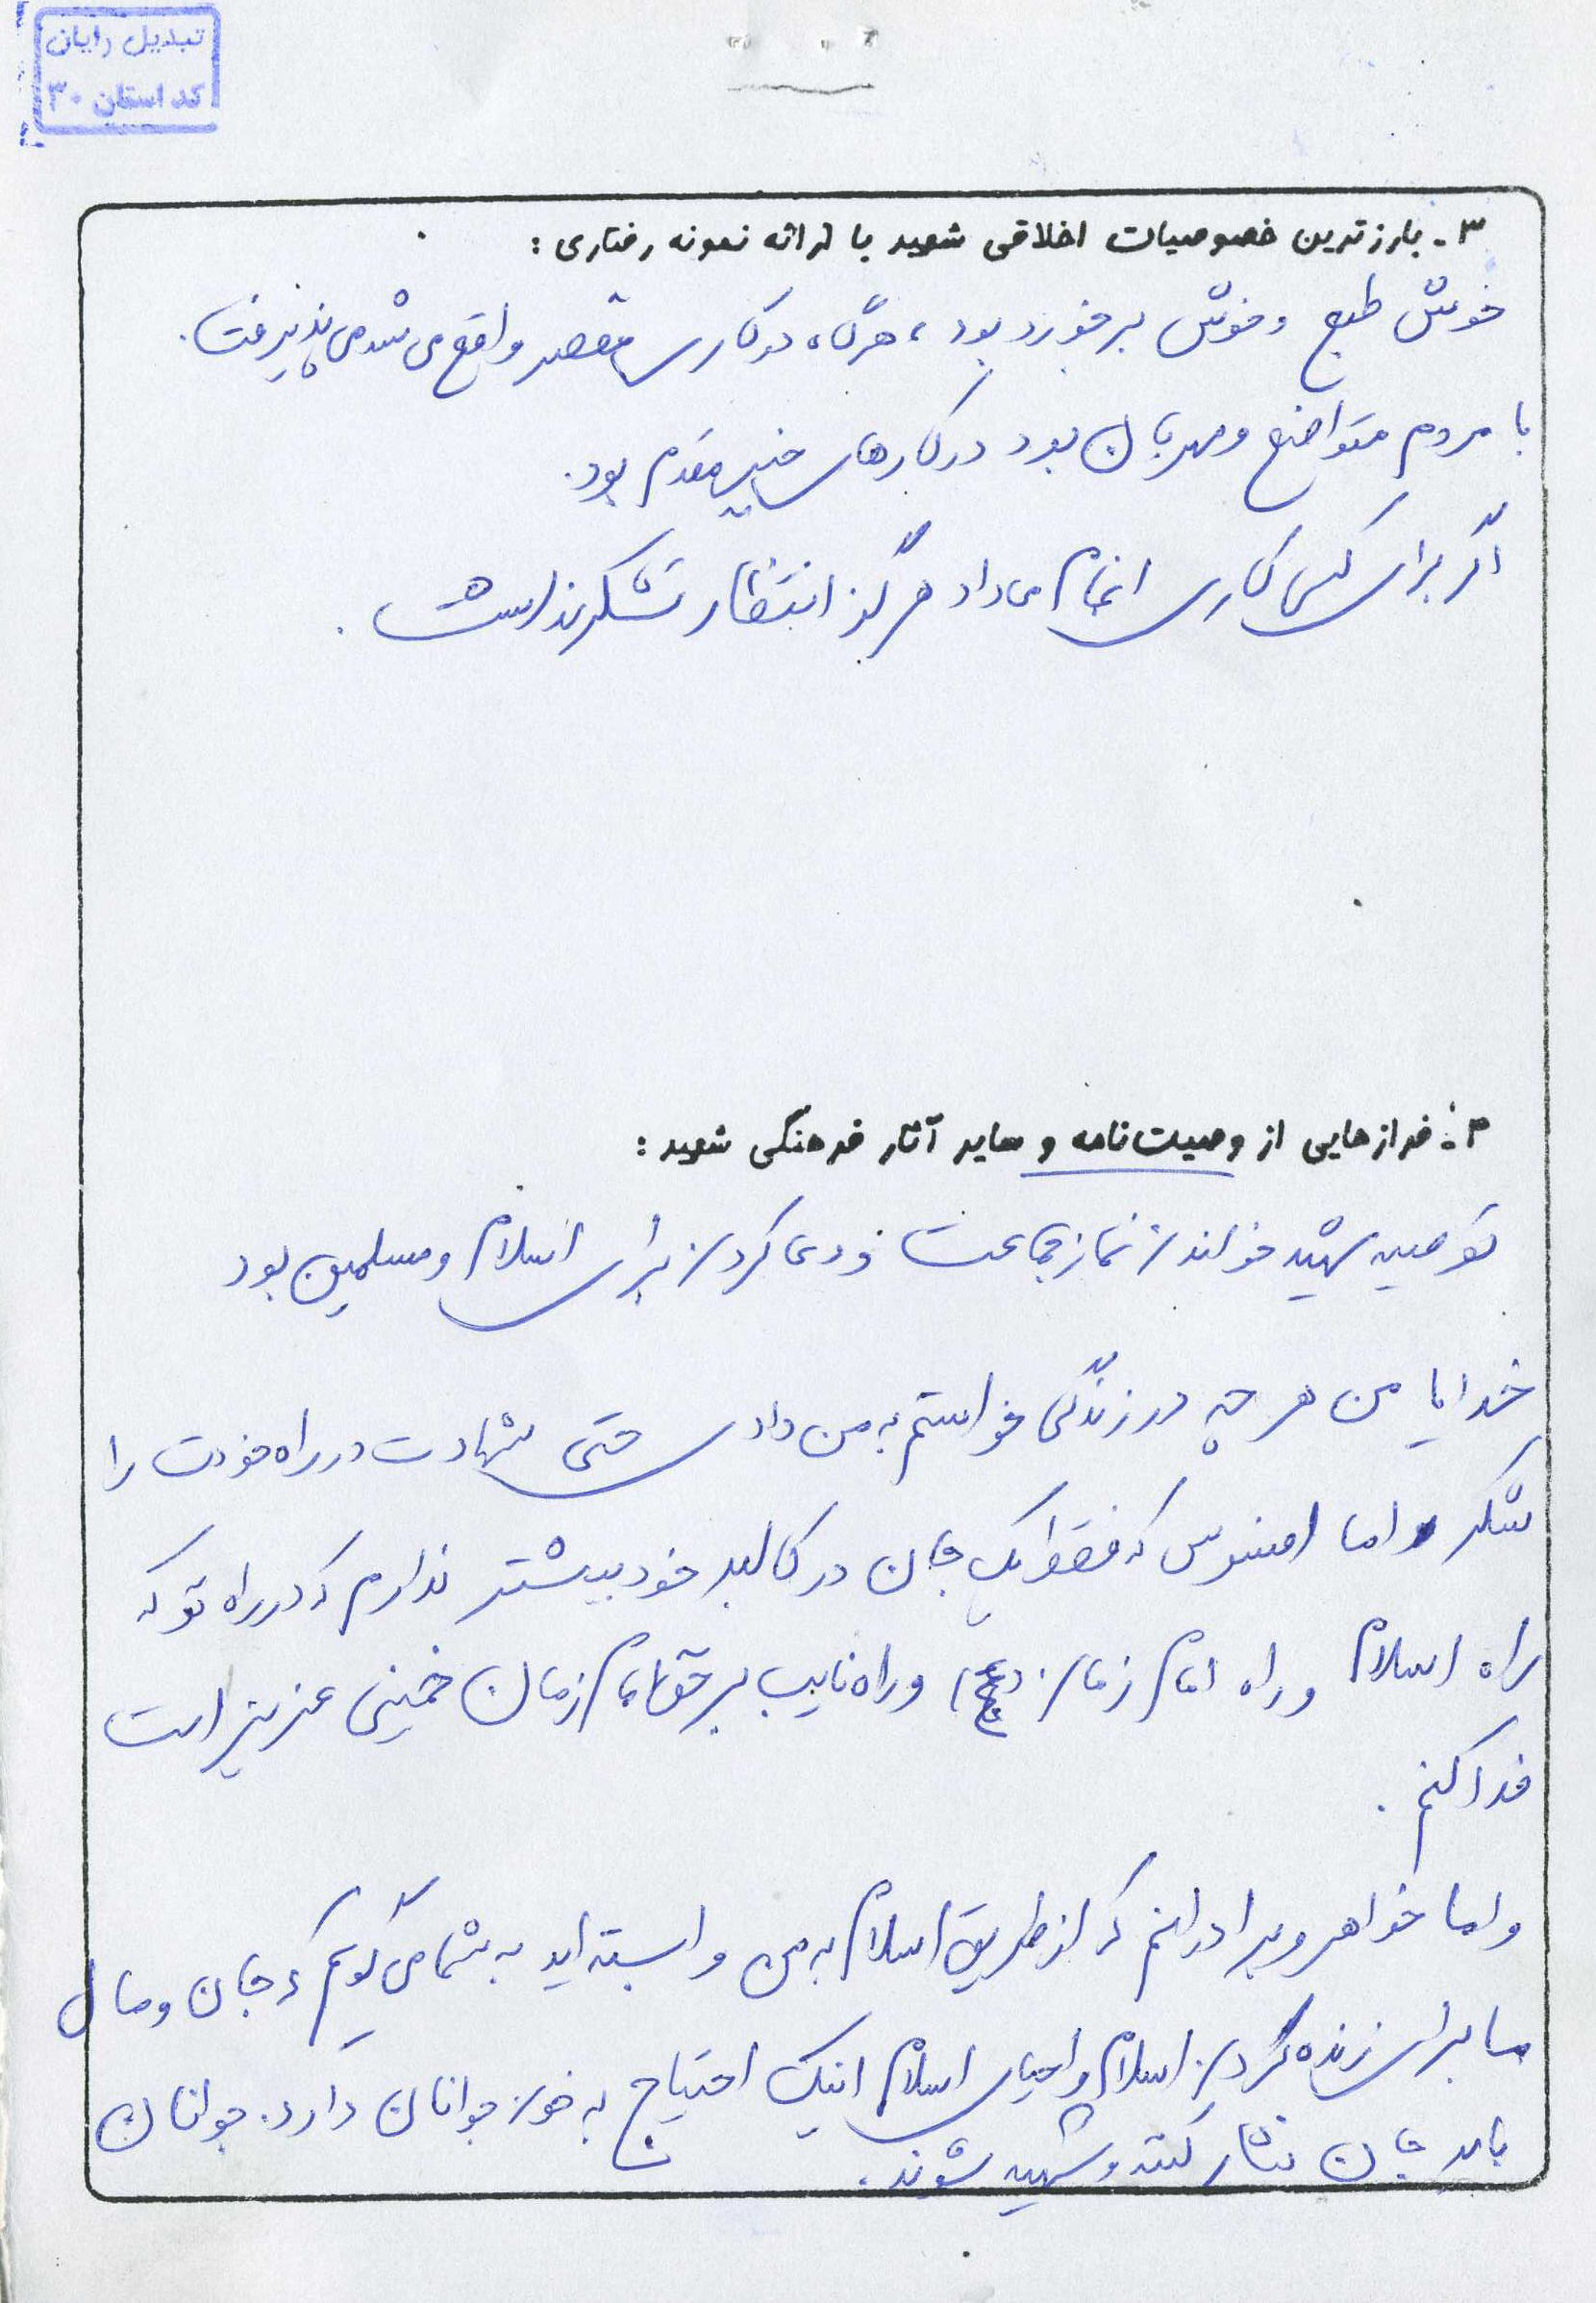 تبدیل رایان
کد استان ۳۰
۳ـ بارزترین خصوصیات اخلاقی شهید با ارائه نمونه رفتاری :
خوش طبع و خوش برخورد بود ، هرگاه در کاری مقصر واقع می شد می پذیرفت .
با مردم متواضع و مهربان بود در کارهای خیر مقدم بود .
اگر برای کسی کاری انجام می داد هرگز انتظار تشکر نداشت .
۴ـ فرازهایی از وصیت‌نامه و سایر آثار فرهنگی شهید :
توصیه شهید خواندن نماز جماعت کردن برای اسلام و مسلمین بود
خدایا من هر چه در زندگی خواستم به من دادی حتی شهادت در راه خودت را
شکر اما افسوس که فقط یک جان در کالبد خود بیشتر ندارم که در راه تو که
راه اسلام و راه امام زمان (عج) و راه نایب بر حق امام زمان خمینی عزیز است
فدا کنم .
و اما خواهر و برادرانم که از طریق اسلام به من وابسته اید به شما می گویم که جان و مال
ما برای زنده کردن اسلام و احیای اسلام اینک احتیاج به خون جوانان دارد. جوانان
باید جان نثار کنند و شهید شوند .